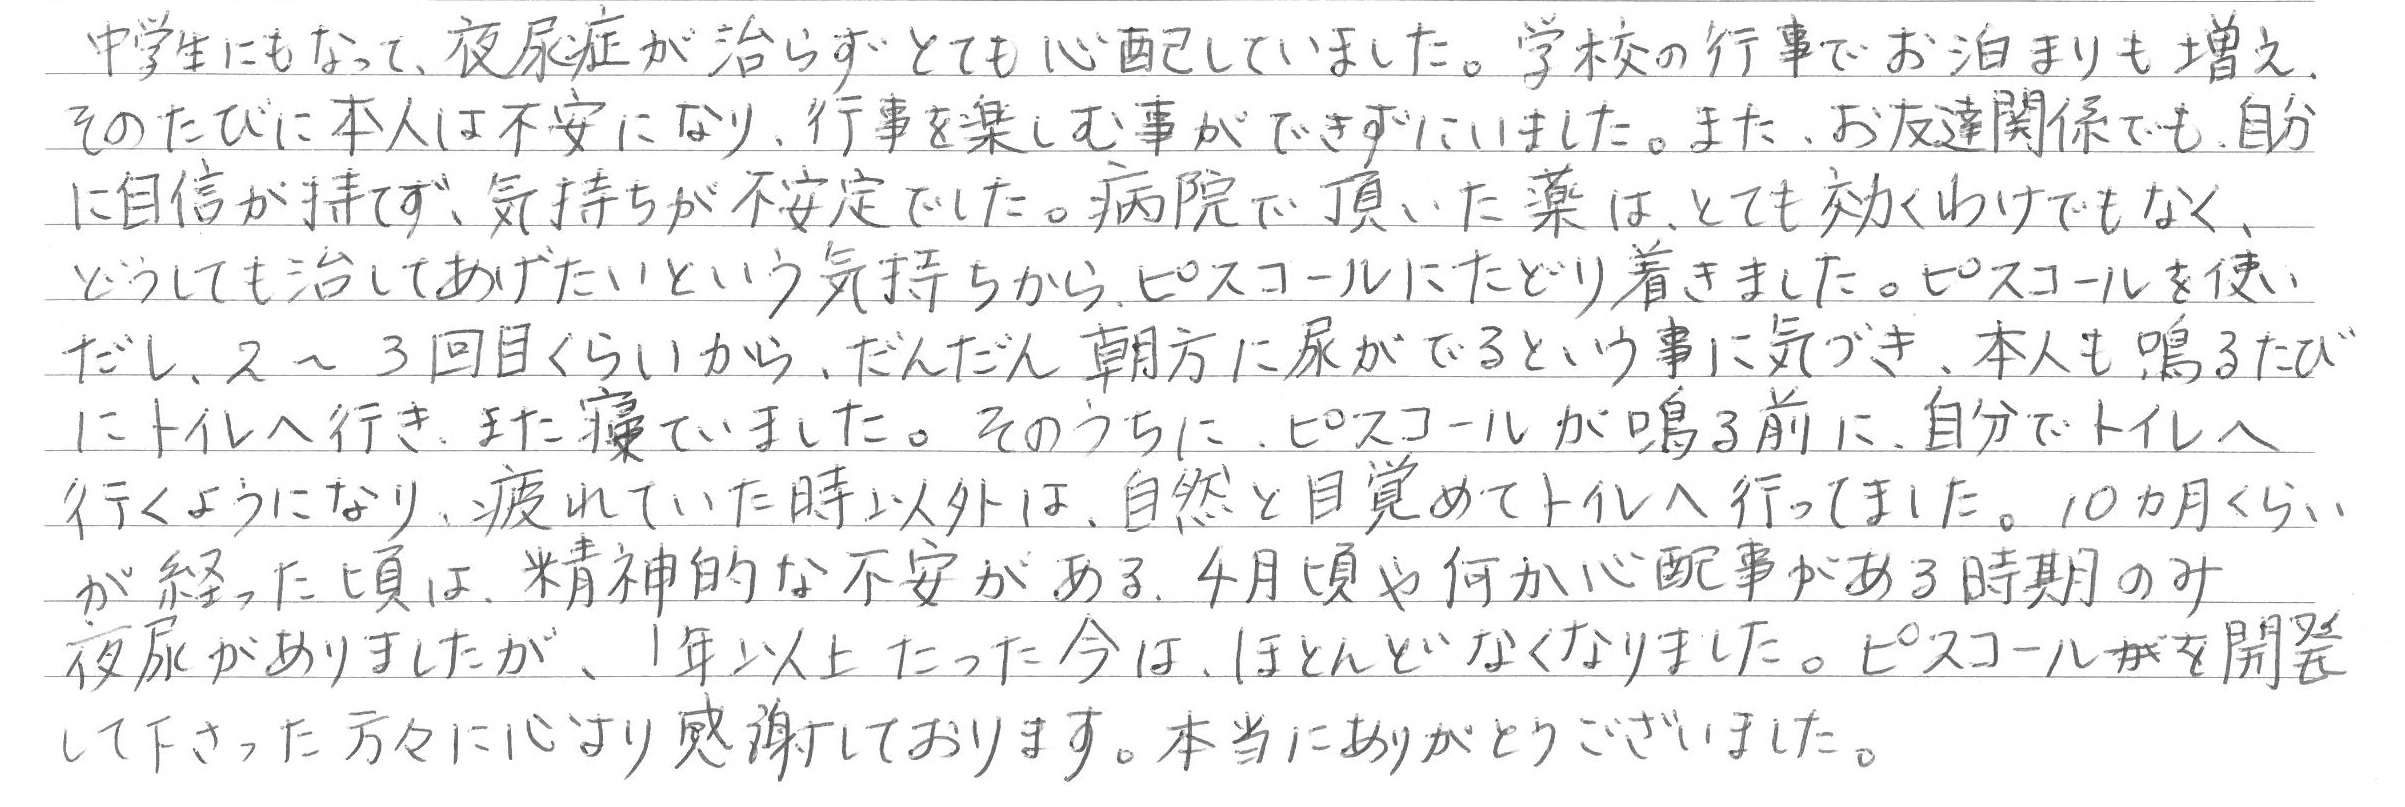 中学生にもなって、夜尿症が治らずとても心配していました。学校の行事でお泊まりも増え、
そのたびに本人は不安になり、行事を楽しむ事ができずにいました。また、お友達関係でも、自分
に自信が持てず、気持ちが不安定でした。病院で頂いた薬は、とても効くわけでもなく、
どうしても治してあげたいという気持ちから、ピスコールにたどり着きました。ピスコールを使い
だし、2〜3回目くらいから、だんだん朝方に尿がでるという事に気づき、本人も鳴るたび
にトイレへ行き、また寝ていました。そのうちに、ピスコールが鳴る前に、自分でトイレへ
行くようになり、疲れていた時以外は、自然と目覚めてトイレへ行ってました。10カ月くらい
が経った頃は、精神的な不安がある、4月頃や何か心配事がある時期のみ
夜尿がありましたが、1年以上たった今は、ほとんどなくなりました。ピスコールを開発
して下さった方々に心より感謝しております。本当にありがとうございました。